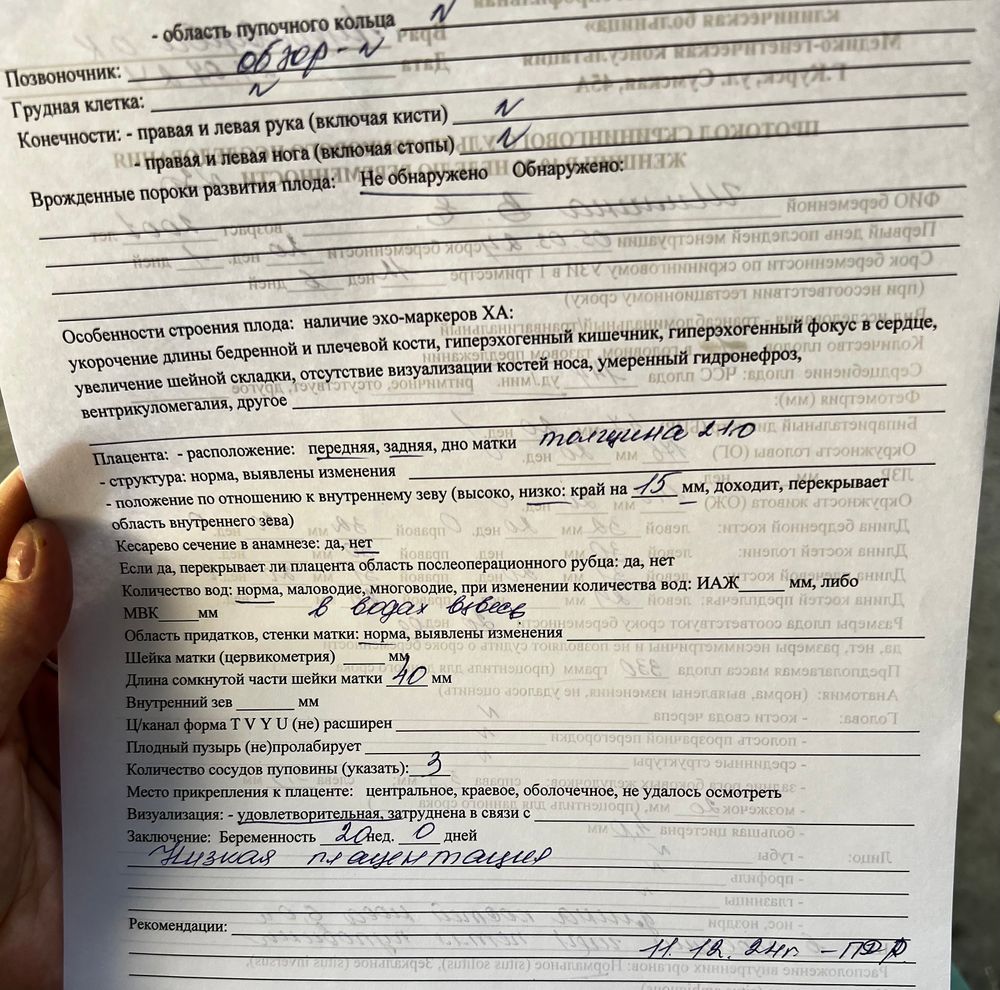 - область пупочного кольца N
Позвоночник: обзор - N
Грудная клетка: N
Конечности: - правая и левая рука (включая кисти) N
- правая и левая нога (включая стопы) N
Врожденные пороки развития плода: Не обнаружено Обнаружено:
Особенности строения плода: наличие эхо-маркеров ХА:
укорочение длины бедренной и плечевой кости, гиперэхогенный кишечник, гиперэхогенный фокус в сердце,
увеличение шейной складки, отсутствие визуализации костей носа, умеренный гидронефроз,
вентрикуломегалия, другое
Плацента: - расположение: передняя, задняя, дно матки толщина 21,0
- структура: норма, выявлены изменения
- положение по отношению к внутреннему зеву (высоко, низко: край на 15 мм, доходит, перекрывает
область внутреннего зева)
Кесарево сечение в анамнезе: да, нет
Если да, перекрывает ли плацента область послеоперационного рубца: да, нет
Количество вод: норма, маловодие, многоводие, при изменении количества вод: ИАЖ мм, либо
МВК мм в водах взвесь
Область придатков, стенки матки: норма, выявлены изменения
Шейка матки (цервикометрия) мм
Длина сомкнутой части шейки матки 40 мм
Внутренний зев мм
Ц/канал форма T V Y U (не) расширен
Плодный пузырь (не)пролабирует
Количество сосудов пуповины (указать): 3
Место прикрепления к плаценте: центральное, краевое, оболочечное, не удалось осмотреть
Визуализация: - удовлетворительная, затруднена в связи с
Заключение: Беременность 20 нед. 0 дней
Низкая плацентация
Рекомендации:
11.12.24г. - ПФР.